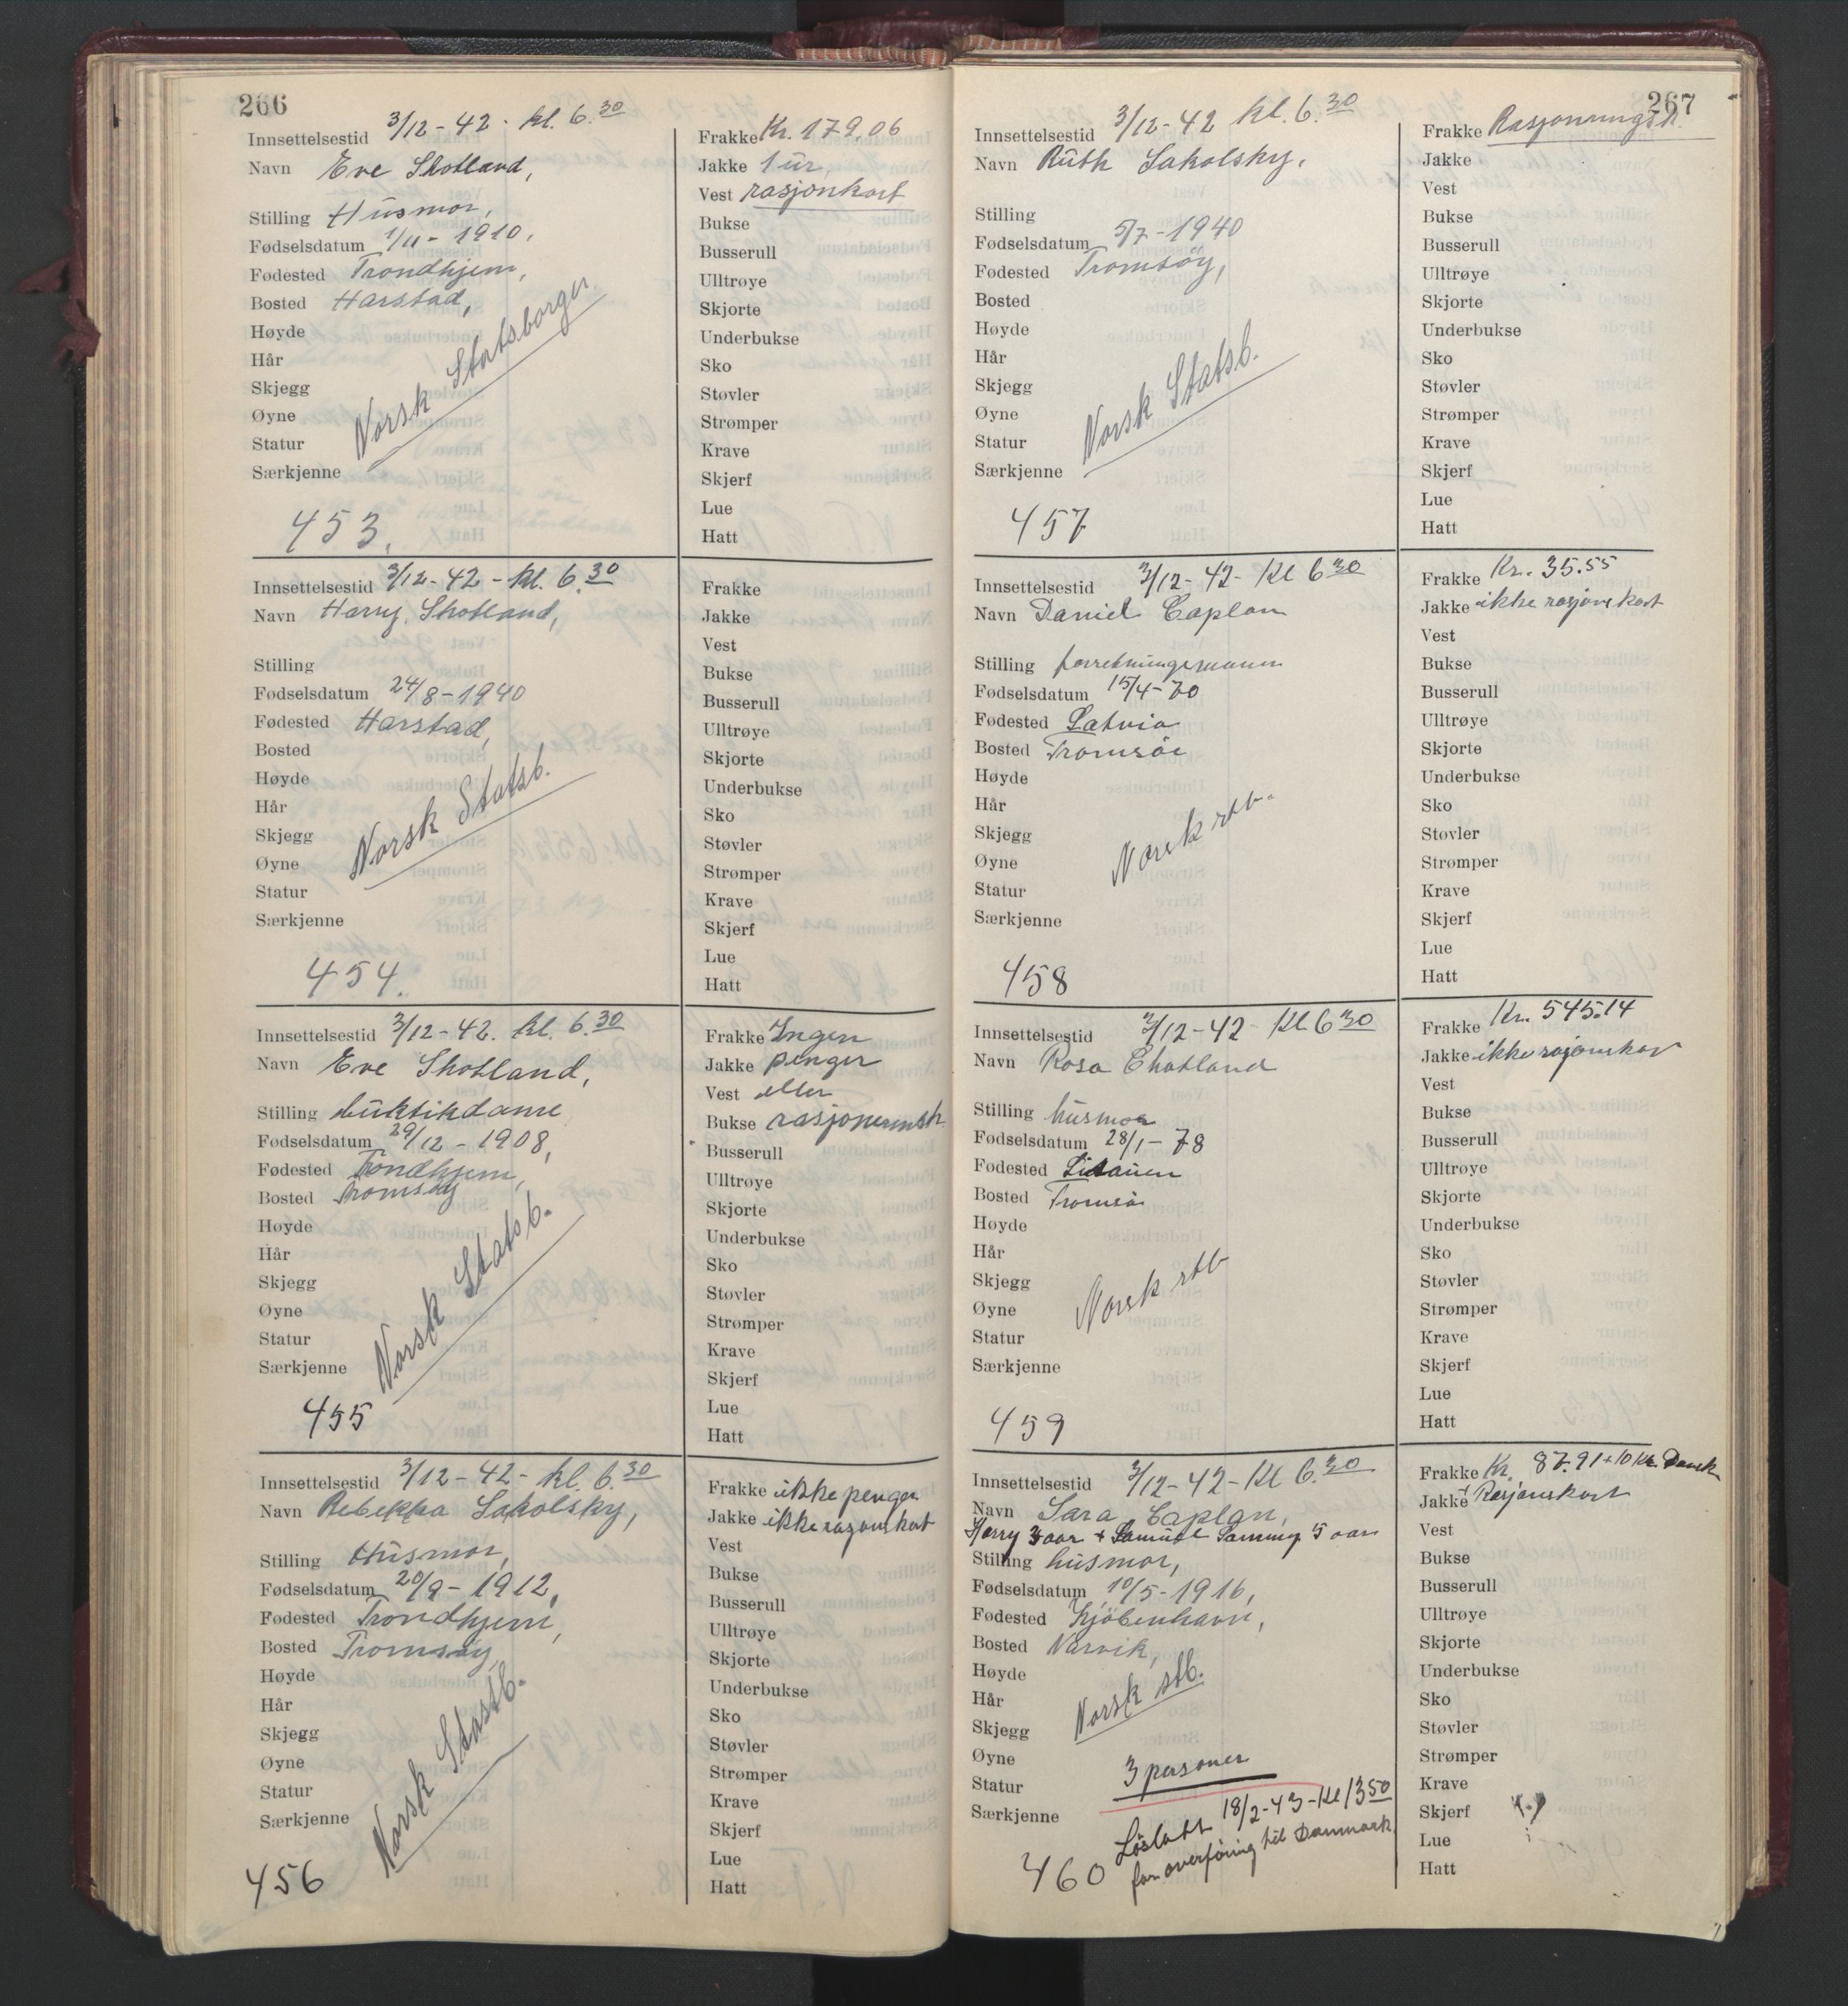 266
Innsettelsestid 3/12-42 - kl. 6.30
Navn Eve Shotland,
Stilling Husmor,
Fødselsdatum 1/11 - 1910,
Fødested Trondhjem,
Bosted Harstad,
Høyde
Hår
Skjegg
Øyne
Statur
Særkjenne
Norsk Statsborger
453.
Frakke Kr. 179.06
Jakke 1 ur,
Vest rasjonkort
Bukse
Busserull
Ulltrøye
Skjorte
Underbukse
Sko
Støvler
Strømper
Krave
Skjerf
Lue
Hatt
Innsettelsestid 3/12-42 - kl. 6.30
Navn Harry Shotland,
Stilling
Fødselsdatum 24/8-1940
Fødested Harstad,
Bosted
Høyde
Hår
Skjegg
Øyne
Statur
Særkjenne
Norsk Statsb.
454.
Frakke
Jakke
Vest
Bukse
Busserull
Ulltrøye
Skjorte
Underbukse
Sko
Støvler
Strømper
Krave
Skjerf
Lue
Hatt
Innsettelsestid 3/12-42. kl. 6.30
Navn Eve Shotland,
Stilling butikdame
Fødselsdatum 29/12 - 1908,
Fødested Trondhjem,
Bosted Tromsöy
Høyde
Hår
Skjegg
Øyne
Statur
Særkjenne
Norsk Statsb.
455
Frakke Ingen
Jakke penger
Vest eller
Bukse rasjonermsk
Busserull
Ulltrøye
Skjorte
Underbukse
Sko
Støvler
Strømper
Krave
Skjerf
Lue
Hatt
Innsettelsestid 3/12-42 - kl. 6.30
Navn Rebekka Sakolsky,
Stilling Husmor,
Fødselsdatum 20/9 - 1912,
Fødested Trondhjem,
Bosted Tromsöy,
Høyde
Hår
Skjegg
Øyne
Statur
Særkjenne
Norsk Stastb.
456
Frakke ikke penger
Jakke ikke rasjonskort
Vest
Bukse
Busserull
Ulltrøye
Skjorte
Underbukse
Sko
Støvler
Strømper
Krave
Skjerf
Lue
Hatt
267
Innsettelsestid 3/12-42 kl. 6.30
Navn Ruth Sakolsky,
Stilling
Fødselsdatum 5/7-1940
Fødested Tromsöy,
Bosted
Høyde
Hår
Skjegg
Øyne
Statur
Særkjenne
Norsk Statsb.
457
Frakke Rasjonringsk.
Jakke
Vest
Bukse
Busserull
Ulltrøye
Skjorte
Underbukse
Sko
Støvler
Strømper
Krave
Skjerf
Lue
Hatt
Innsettelsestid 3/12-42- Kl 6 30
Navn Daniel Caplan
Stilling forretningsmann
Fødselsdatum 15/4-70
Fødested Latvia
Bosted Tromsöe
Høyde
Hår
Skjegg
Øyne
Statur
Særkjenne
Norsk stb.
458
Frakke Kr. 35.55
Jakke ikke rasjonskort
Vest
Bukse
Busserull
Ulltrøye
Skjorte
Underbukse
Sko
Støvler
Strømper
Krave
Skjerf
Lue
Hatt
Innsettelsestid 3/12-42 Kl 6 30
Navn Rosa Chotland
Stilling husmor
Fødselsdatum 28/1-78
Fødested Litauen
Bosted Tromsö
Høyde
Hår
Skjegg
Øyne
Statur
Særkjenne
Norsk stb
459
Frakke Kr. 545.14
Jakke ikke rasjonskor
Vest
Bukse
Busserull
Ulltrøye
Skjorte
Underbukse
Sko
Støvler
Strømper
Krave
Skjerf
Lue
Hatt
Innsettelsestid 3/12-42-Kl 6.30
Navn Sara Caplan,
Harry 3 aar + Samuel Sammy 5 aar
Stilling husmor,
Fødselsdatum 10/5-1916,
Fødested Kjöbenhavn,
Bosted Narvik,
Høyde
Hår
Skjegg
Øyne
Statur
Særkjenne
Norsk stb.
3 personer
Löslatt 18/2-43-Kl 13 50
for overföring til Danmark
460
Frakke Kr. 87.91 + 10 Kr. Dansk
Jakke + Rasjonskort
Vest
Bukse
Busserull
Ulltrøye
Skjorte
Underbukse
Sko
Støvler
Strømper
Krave
Skjerf
Lue
Hatt